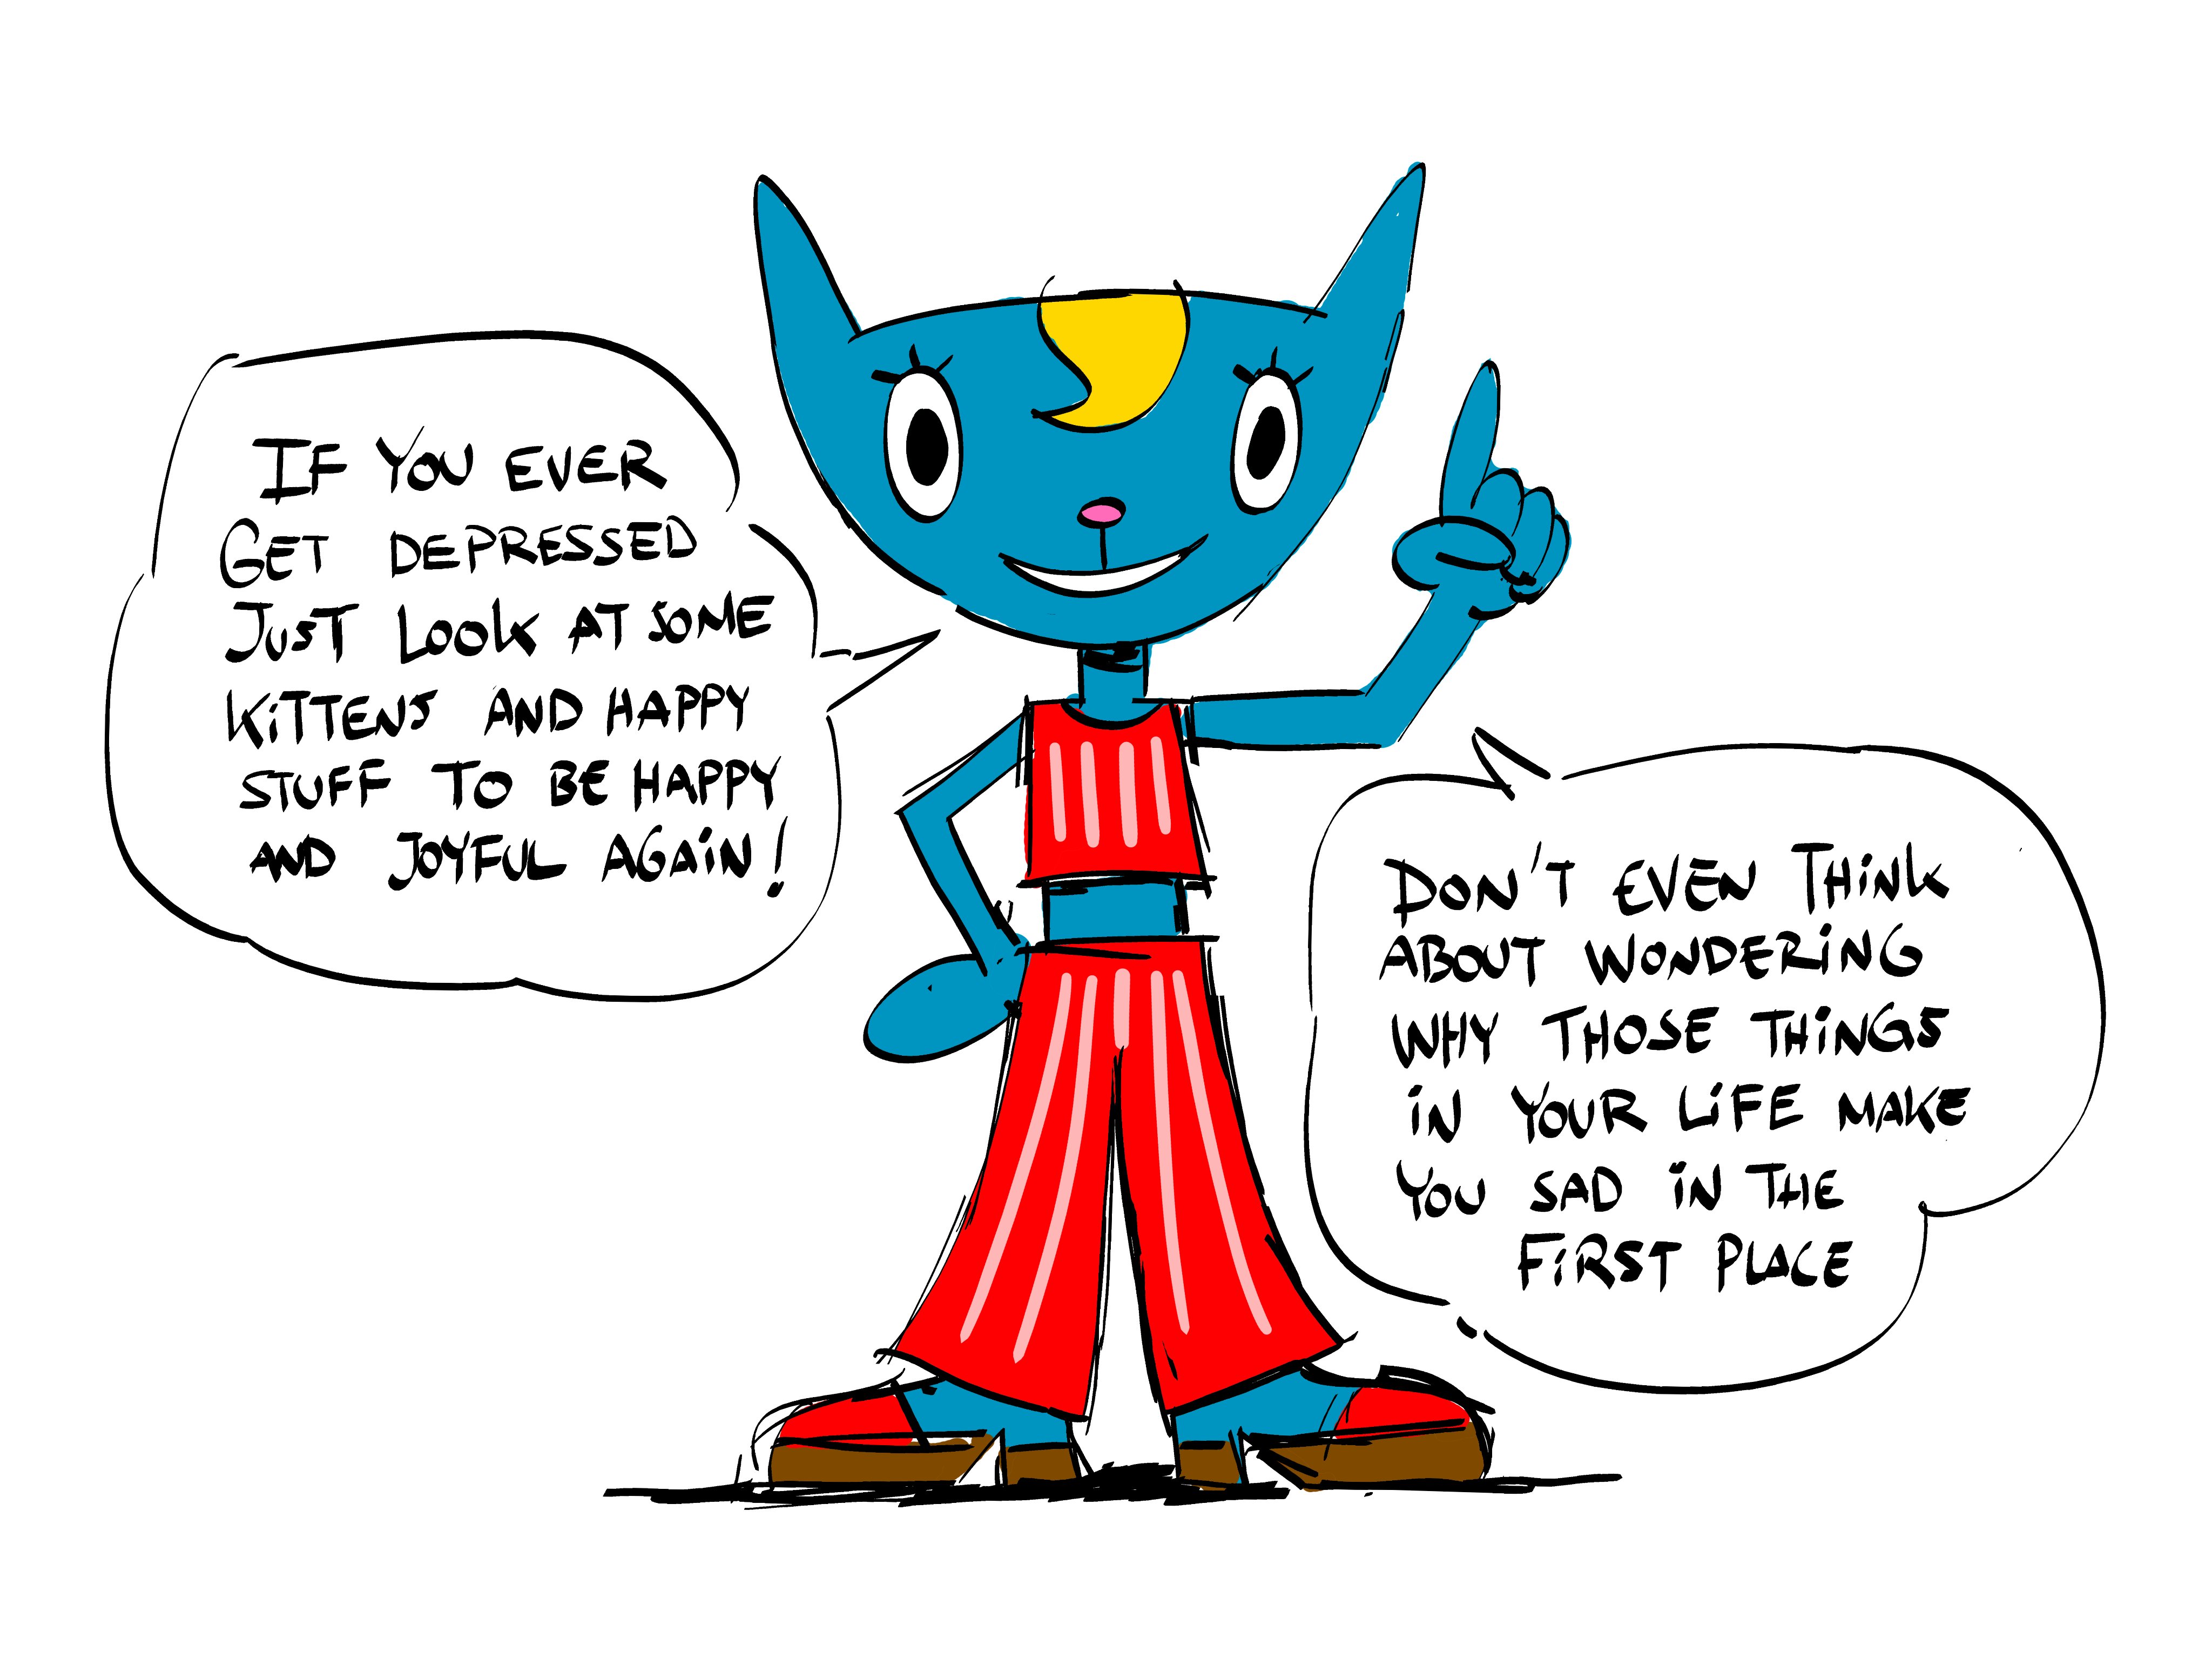 IF YOU EVER
GET DEPRESSED
JUST LOOK AT SOME
KITTENS AND HAPPY
STUFF TO BE HAPPY
AND JOYFUL AGAIN!
DON'T EVEN THINK
ABOUT WONDERING
WHY THOSE THINGS
IN YOUR LIFE MAKE
YOU SAD IN THE
FIRST PLACE